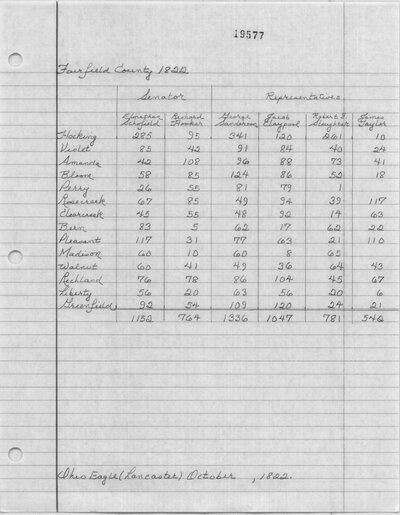 19577
Fairfield County 1822
Senator Representatives
Elnathan Scofield Richard Hooker George Sanderson Jacob Claypool Robert F. Slaughter James Taylor
Hocking 285 95 341 120 201 10
Violet 85 42 91 84 40 24
Amanda 42 108 96 88 73 41
Bloom 58 85 124 86 52 18
Perry 26 55 81 79 1
Rosecreek 67 85 49 94 39 117
Clearcreek 45 55 48 92 14 63
Bern 83 5 62 17 62 22
Pleasant 117 31 77 63 21 110
Madison 60 10 60 8 65
Walnut 60 41 49 36 64 43
Richland 76 78 86 104 45 67
Liberty 56 20 63 56 20 6
Greenfield 92 54 109 120 24 21
1152 764 1336 1047 781 542
Ohio Eagle (Lancaster) October , 1822.